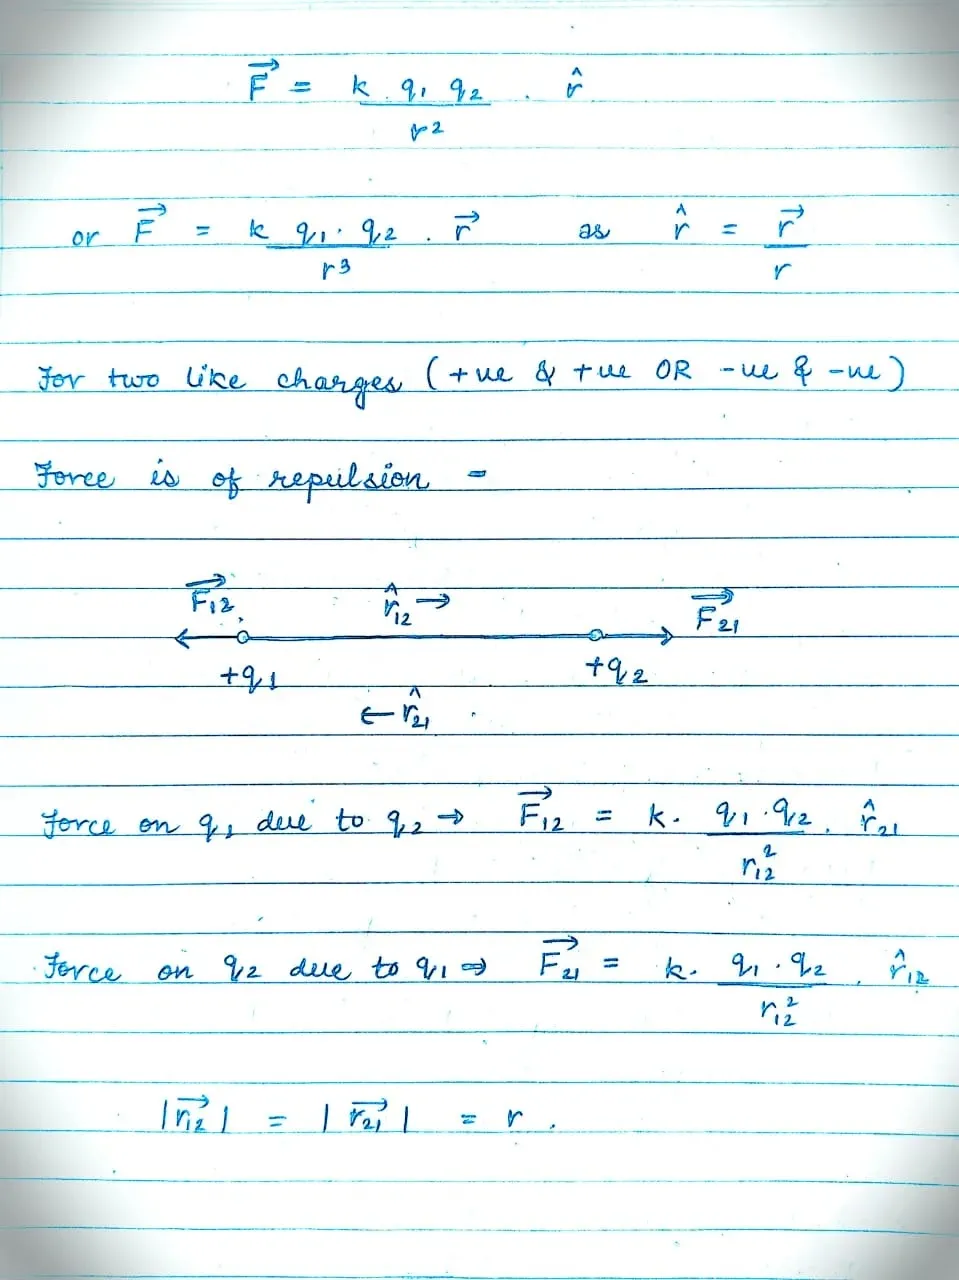 F⃗ = k q₁ q₂ / r² . r̂
or F⃗ = k q₁ . q₂ / r³ . r⃗ as r̂ = r⃗ / r
For two like charges (+ve & +ve OR -ve & -ve)
Force is of repulsion =
F⃗₁₂ r̂₁₂ → F⃗₂₁
+q₁ +q₂
← r̂₂₁
Force on q₁ due to q₂ ⇒ F⃗₁₂ = k . q₁ . q₂ / r₁₂² . r̂₂₁
Force on q₂ due to q₁ ⇒ F⃗₂₁ = k . q₁ . q₂ / r₁₂² . r̂₁₂
|r⃗₁₂| = |r⃗₂₁| = r .